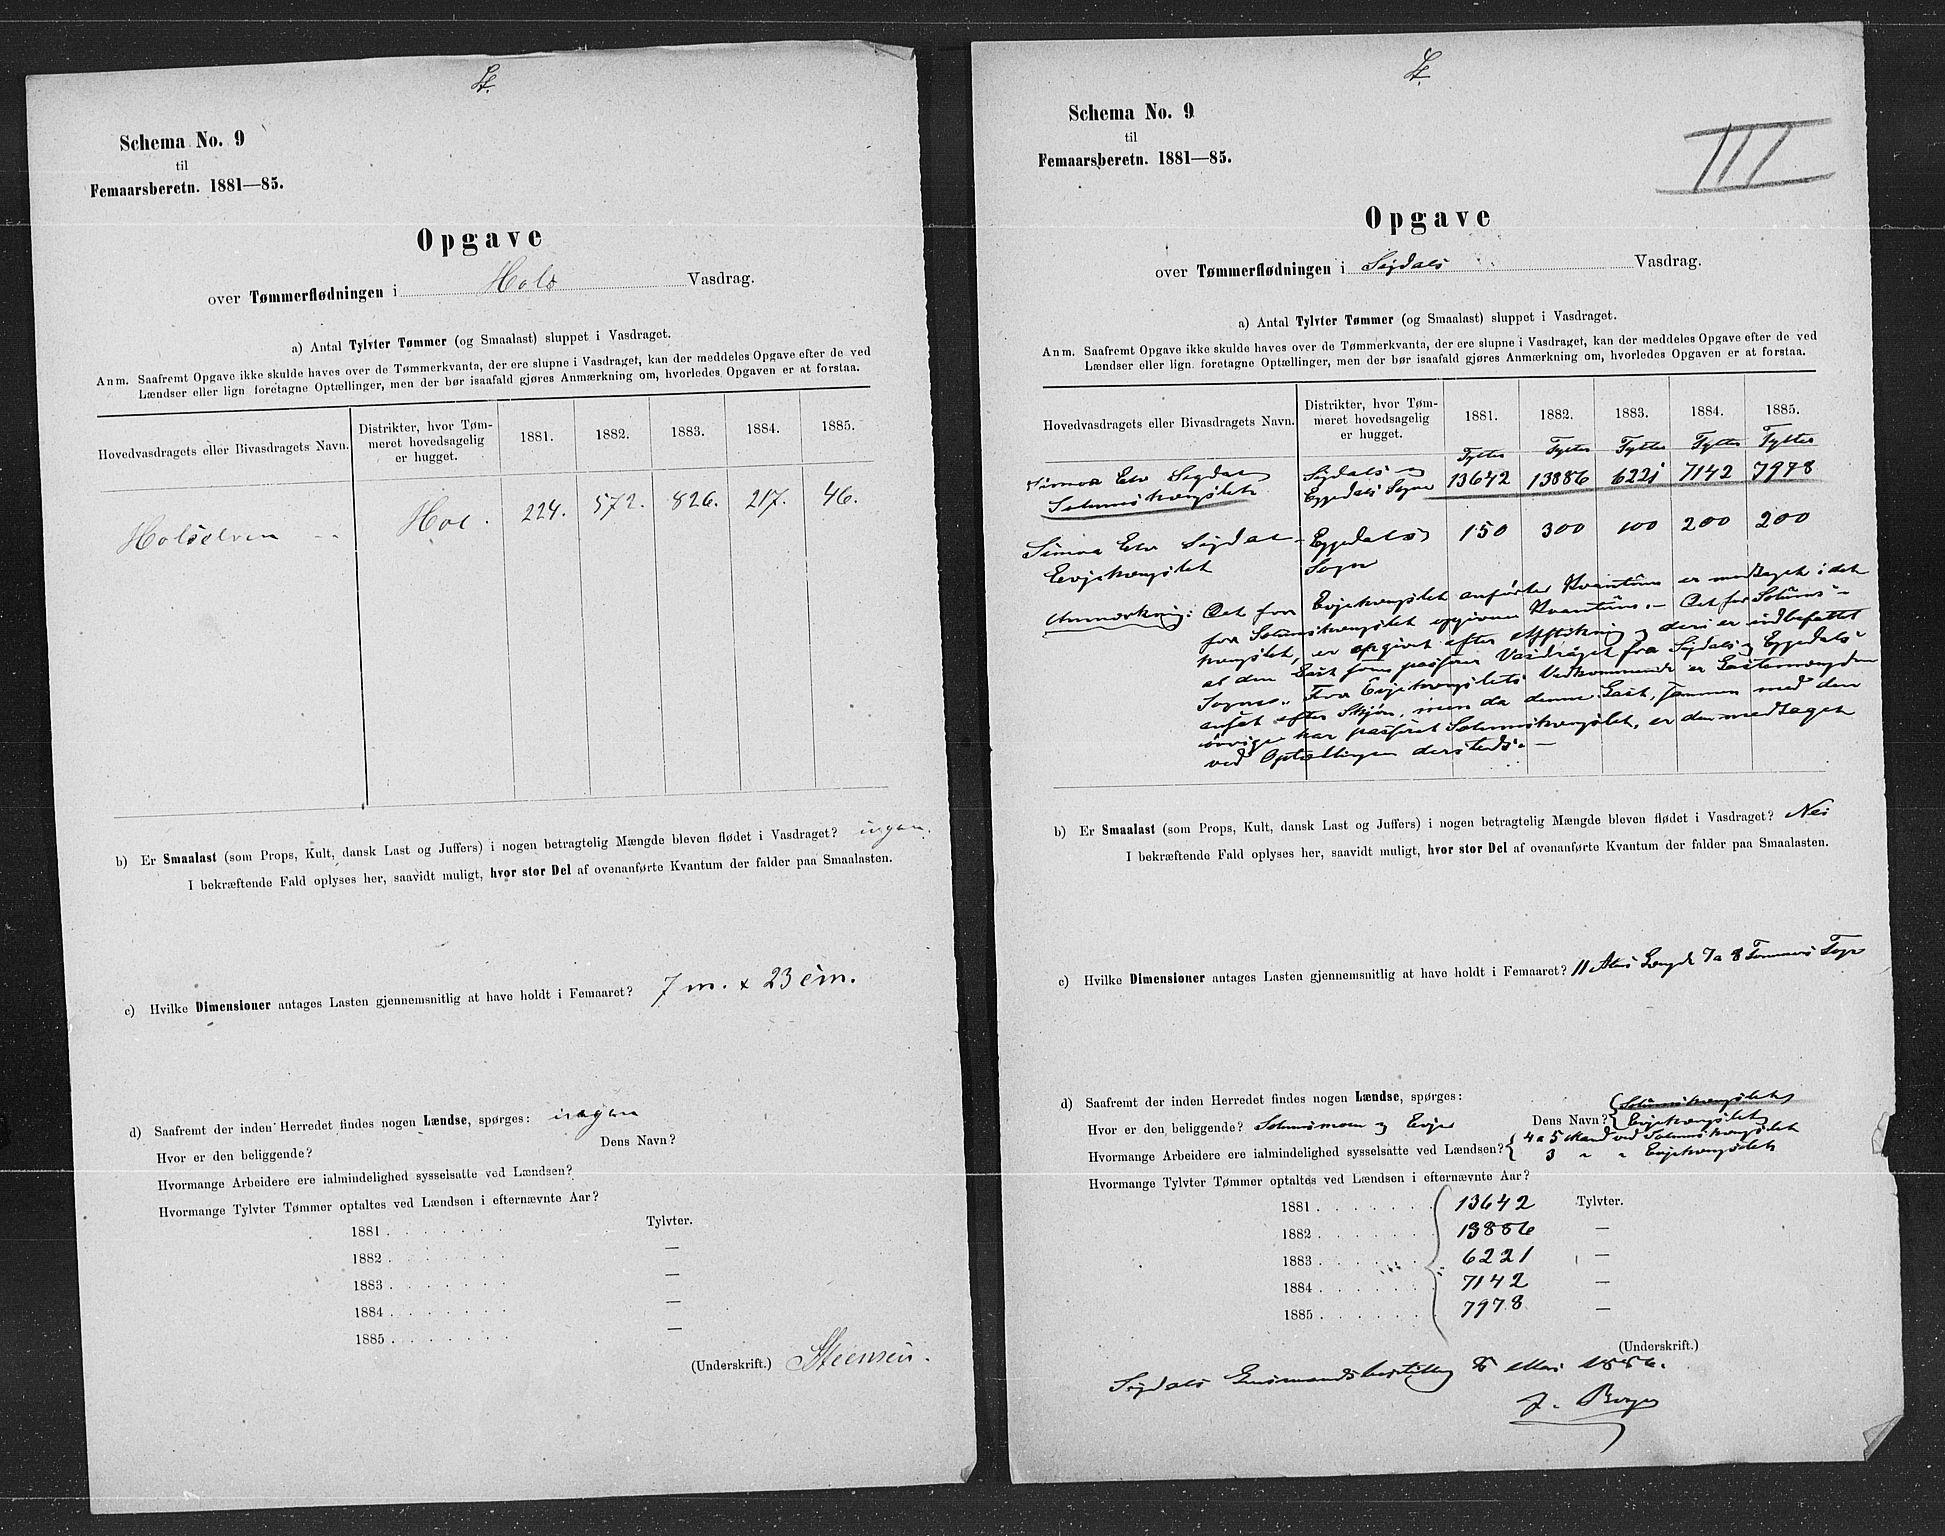 Schema No. 9
til
Femaarsberetn. 1881—85.
Opgave
over Tømmerflødningen i Hols Vasdrag.
a) Antal Tylvter Tømmer (og Smaalast) sluppet i Vasdraget.
Anm. Saafremt Opgave ikke skulde haves over de Tømmerkvanta, der ere slupne i Vasdraget, kan der meddeles Opgave efter de ved
Lændser eller lign foretagne Optællinger, men der bør isaafald gjøres Anmærkning om, hvorledes Opgaven er at forstaa.
Hovedvasdragets eller Bivasdragets Navn. Distrikter, hvor Tømmeret hovedsagelig er hugget. 1881. 1882. 1883. 1884. 1885.
Holselven Hol. 224. 572. 826. 217. 46.
b) Er Smaalast (som Props, Kult, dansk Last og Juffers) i nogen betragtelig Mængde bleven flødet i Vasdraget? ingen.
I bekræftende Fald oplyses her, saavidt muligt, hvor stor Del af ovenanførte Kvantum der falder paa Smaalasten.
c) Hvilke Dimensioner antages Lasten gjennemsnitlig at have holdt i Femaaret? 7 m. x 23 cm.
d) Saafremt der inden Herredet findes nogen Lændse, spørges: ingen
Hvor er den beliggende? Dens Navn?
Hvormange Arbeidere ere ialmindelighed sysselsatte ved Lændsen?
Hvormange Tylvter Tømmer optaltes ved Lændsen i efternævnte Aar?
1881 . . . . . . Tylvter.
1882 . . . . . . —
1883 . . . . . . —
1884 . . . . . . —
1885 . . . . . . —
(Underskrift.) Steensen.
Schema No. 9
til
Femaarsberetn. 1881—85.
III
Opgave
over Tømmerflødningen i Sigdals Vasdrag.
a) Antal Tylvter Tømmer (og Smaalast) sluppet i Vasdraget.
Anm. Saafremt Opgave ikke skulde haves over de Tømmerkvanta, der ere slupne i Vasdraget, kan der meddeles Opgave efter de ved
Lændser eller lign. foretagne Optællinger, men der bør isaafald gjøres Anmærkning om, hvorledes Opgaven er at forstaa.
Hovedvasdragets eller Bivasdragets Navn. Distrikter, hvor Tømmeret hovedsagelig er hugget. 1881. 1882. 1883. 1884. 1885.
Tylter Tylter Tylter Tylter Tylter
Simoa Elv Sigdal Sigdals og 13642 13886 6221 7142 7978
Solumshengslet Eggedals Sogne
Simoa Elv Sigdal Eggedals 150 300 100 200 200
Evjehengslet Sogn
Anmærkning: Det for Evjehengslet anførte Kvantum er medtaget i det
for Solumshengslet opgivne Kvantum.— Det for Solums-
hengslet, er opgivet efter og deri er indbefattet
al den Last som passerer Vasdraget fra Sigdals og Eggedals
Sogne. For Evjehengslets Vedkommende er Lastemængden
ansat efter Skjøn, men da denne Last, sammen med den
øvrige har passeret Solumshengslet, er den medtaget
ved Optællingen dersteds.—
b) Er Smaalast (som Props, Kult, dansk Last og Juffers) i nogen betragtelig Mængde bleven flødet i Vasdraget? Nei
I bekræftende Fald oplyses her, saavidt muligt, hvor stor Del af ovenanførte Kvantum der falder paa Smaalasten.
c) Hvilke Dimensioner antages Lasten gjennemsnitlig at have holdt i Femaaret? 11 Alns Længde 7 a 8 Tommers Top
d) Saafremt der inden Herredet findes nogen Lændse, spørges:
Hvor er den beliggende? Solumsmoen og Evje Dens Navn? { Solumshengslet
Evjehengslet
Hvormange Arbeidere ere ialmindelighed sysselsatte ved Lændsen? { 4 a 5 Mand ved Solumshengslet
3 " " Evjehengslet
Hvormange Tylvter Tømmer optaltes ved Lændsen i efternævnte Aar?
1881 . . . . . . 13642 Tylvter.
1882 . . . . . . 13886 —
1883 . . . . . . 6221 —
1884 . . . . . . 7142 —
1885 . . . . . . 7978 —
(Underskrift.)
Sigdals Lensmandsbestilling 8 Mai 1886.